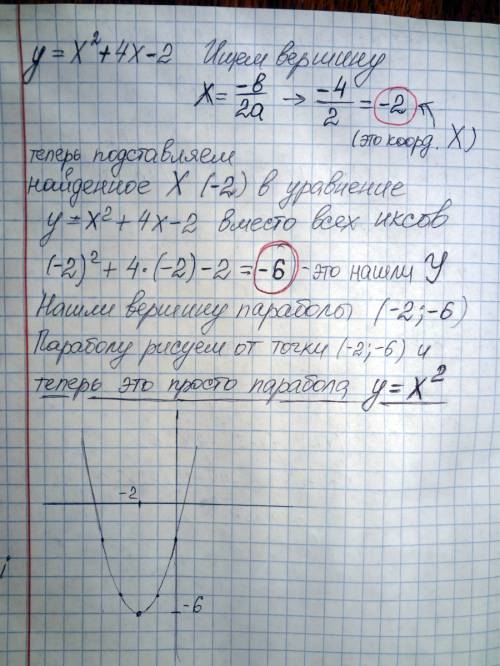 y = x² + 4x - 2 Ищем вершину
x = -в/2а → -4/2 = -2
(это коорд. X)
теперь подставляем
найденное X (-2) в уравнение
y = x² + 4x - 2 вместо всех иксов
(-2)² + 4·(-2) - 2 = -6 - это нашли y
Нашли вершину параболы (-2; -6)
Параболу рисуем от точки (-2; -6) и
теперь это просто парабола y = x²
-2
-6